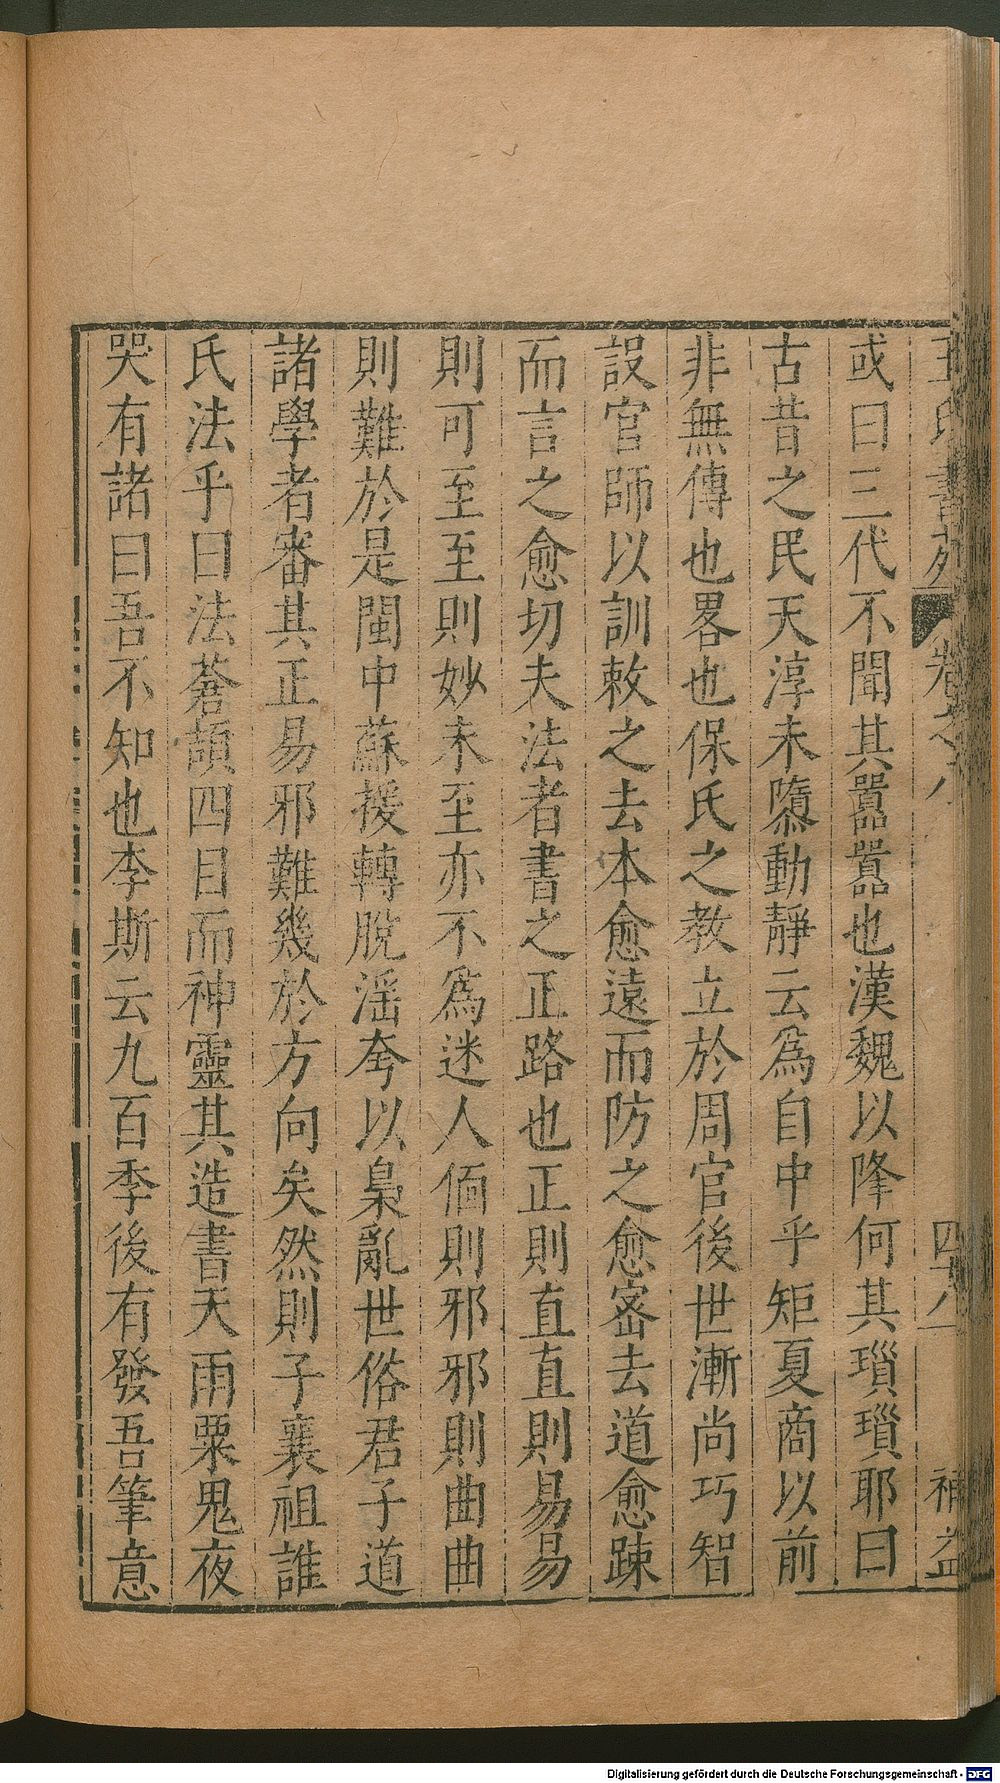 書苑 卷之八 四十八 補益
或曰三代不聞其囂囂也漢魏以降何其瑣瑣耶曰
古昔之民天淳未隳動靜云爲自中乎矩夏商以前
非無傳也畧也保氏之教立於周官後世漸尚巧智
設官師以訓敕之去本愈遠而防之愈密去道愈踈
而言之愈切夫法者書之正路也正則直直則易易
則可至至則妙未至亦不爲迷人偭則邪邪則曲曲
則難於是閩中蘇援轉脫滛夸以梟亂世俗君子道
諸學者審其正易邪難幾於方向矣然則子襄祖誰
氏法乎曰法蒼頡四目而神靈其造書天雨粟鬼夜
哭有諸曰吾不知也李斯云九百季後有發吾筆意
Digitalisierung gefördert durch die Deutsche Forschungsgemeinschaft - DFG